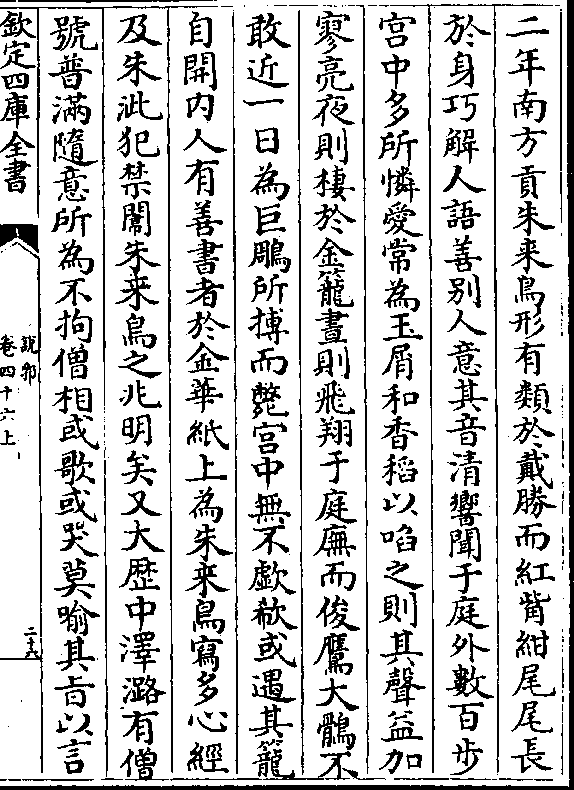 二年南方貢朱来鳥形有類於戴勝而紅觜紺尾尾長
於身巧解人語善別人意其音清響聞于庭外數百步
宫中多所憐愛常為玉屑和香稻以啗之則其聲益加
寥亮夜則棲於金籠晝則飛翔于庭廡而俊鷹大鶻不
敢近一日為巨鵰所搏而斃宫中無不歔欷或遇其籠
自開内人有善書者於金華紙上為朱来鳥寫多心經
及朱泚犯禁闈朱来鳥之兆明矣又大歴中澤潞有僧
號普滿隨意所為不拘僧相或歌或哭莫喻其㫖以言
欽定四庫全書
説郛
卷四十六上
二十六